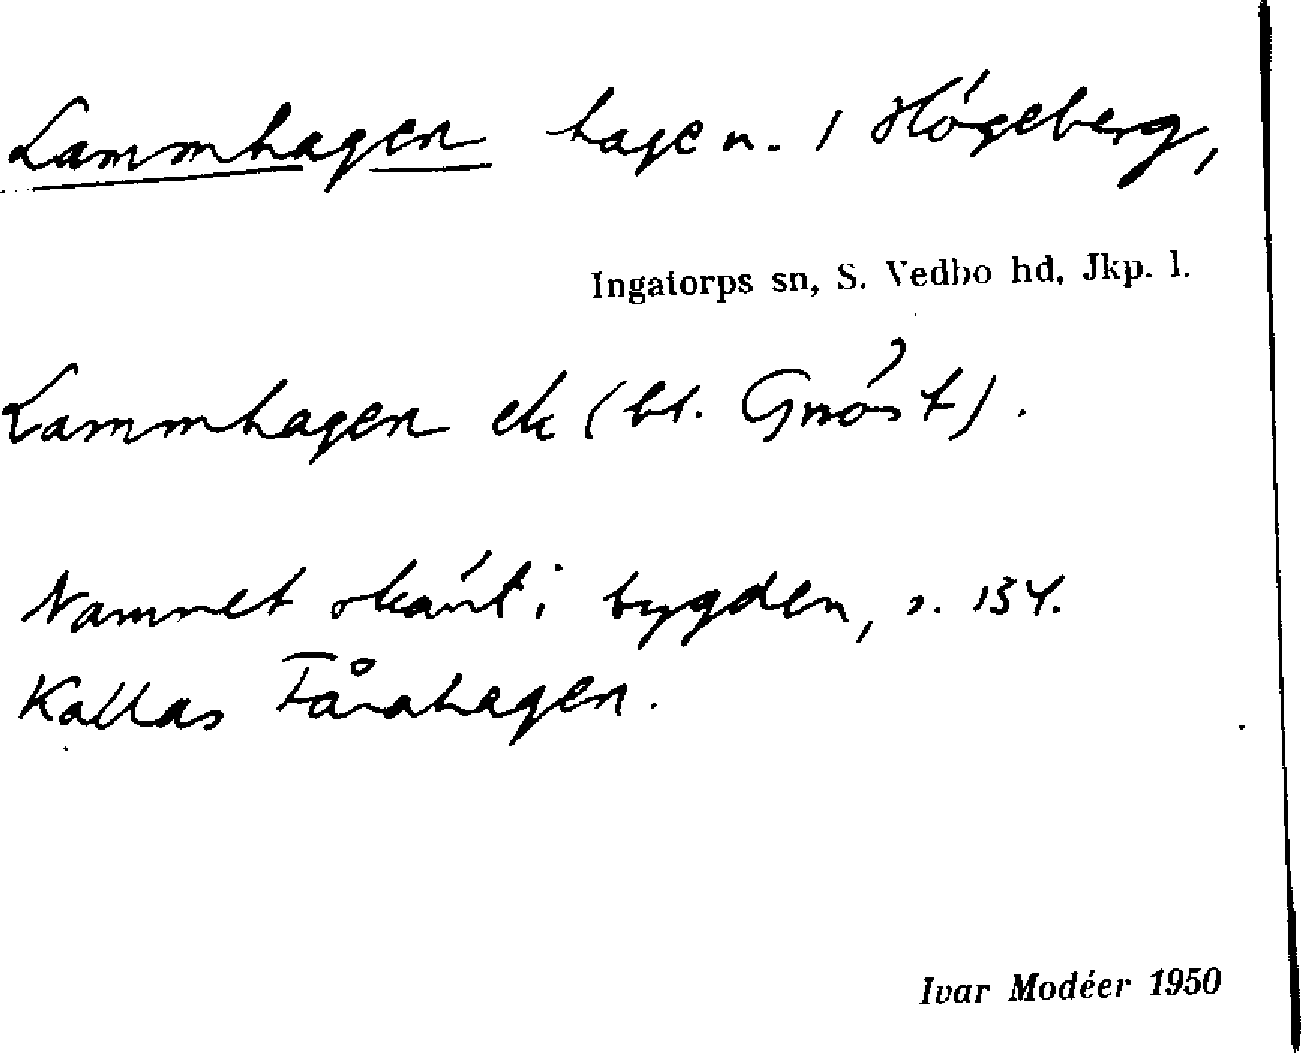 Lammhagen hage n. 1 Högeberg,
Ingatorps sn, S. Vedbo hd, Jkp. l.
Lammhagen ek (bl. Gnöst).
Namnet okänt i bygden, s. 134.
Kallas Fårahagen.
Ivar Modéer 1950